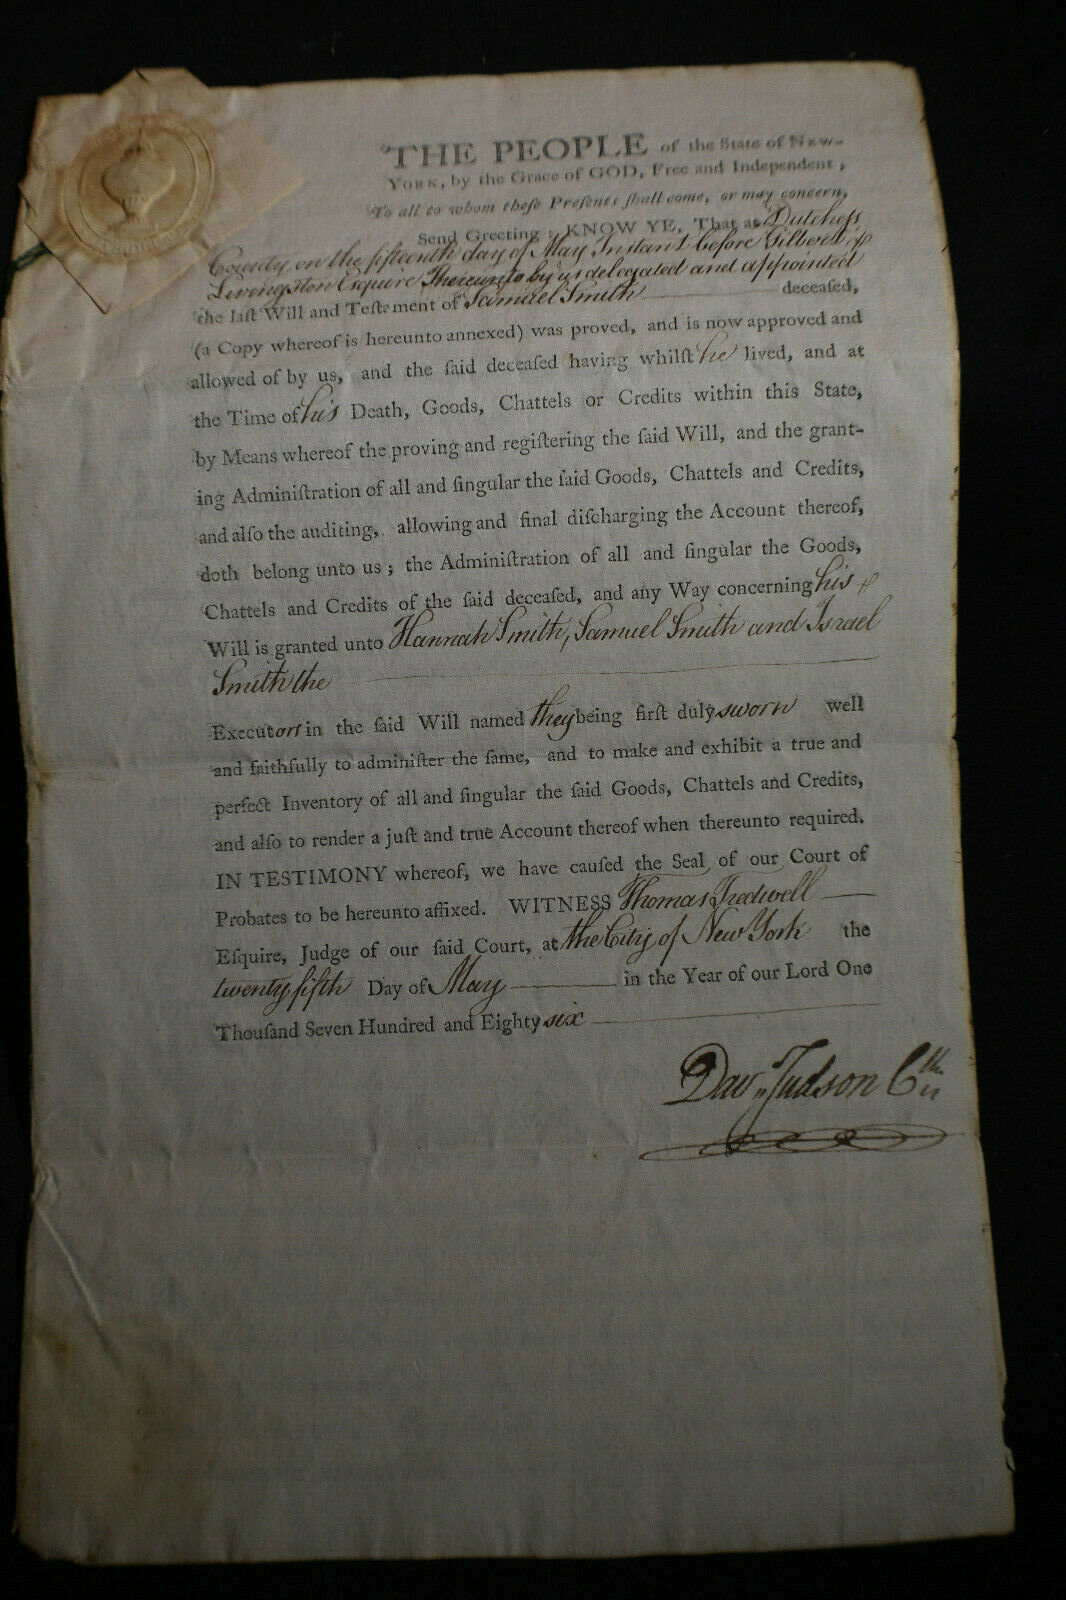 THE PEOPLE of the State of NEW-
YORK, by the Grace of GOD, Free and Independent;
To all to whom theſe Preſents ſhall come, or may concern,
Send Greeting: KNOW YE, That at Dutcheſs
County on the fifteenth day of May Instant before Gilbert
Livingston Esquire Thereunto by us delegated and appointed
the laſt Will and Teſtament of Samuel Smith deceaſed,
(a Copy whereof is hereunto annexed) was proved, and is now approved and
allowed of by us, and the ſaid deceaſed having whilſt he lived, and at
the Time of his Death, Goods, Chattels or Credits within this State,
by Means whereof the proving and regiſtering the ſaid Will, and the grant-
ing Adminiſtration of all and ſingular the ſaid Goods, Chattels and Credits,
and alſo the auditing, allowing and final diſcharging the Account thereof,
doth belong unto us; the Adminiſtration of all and ſingular the Goods,
Chattels and Credits of the ſaid deceaſed, and any Way concerning his
Will is granted unto Hannah Smith, Samuel Smith and Israel
Smith the
Executors in the ſaid Will named they being firſt duly sworn well
and faithfully to adminiſter the ſame, and to make and exhibit a true and
perfect Inventory of all and ſingular the ſaid Goods, Chattels and Credits,
and alſo to render a juſt and true Account thereof when thereunto required.
IN TESTIMONY whereof, we have cauſed the Seal of our Court of
Probates to be hereunto affixed. WITNESS Thomas Tredwell
Eſquire, Judge of our ſaid Court, at the City of New York the
twenty fifth Day of May in the Year of our Lord One
Thouſand Seven Hundred and Eighty six
Dav. Judson